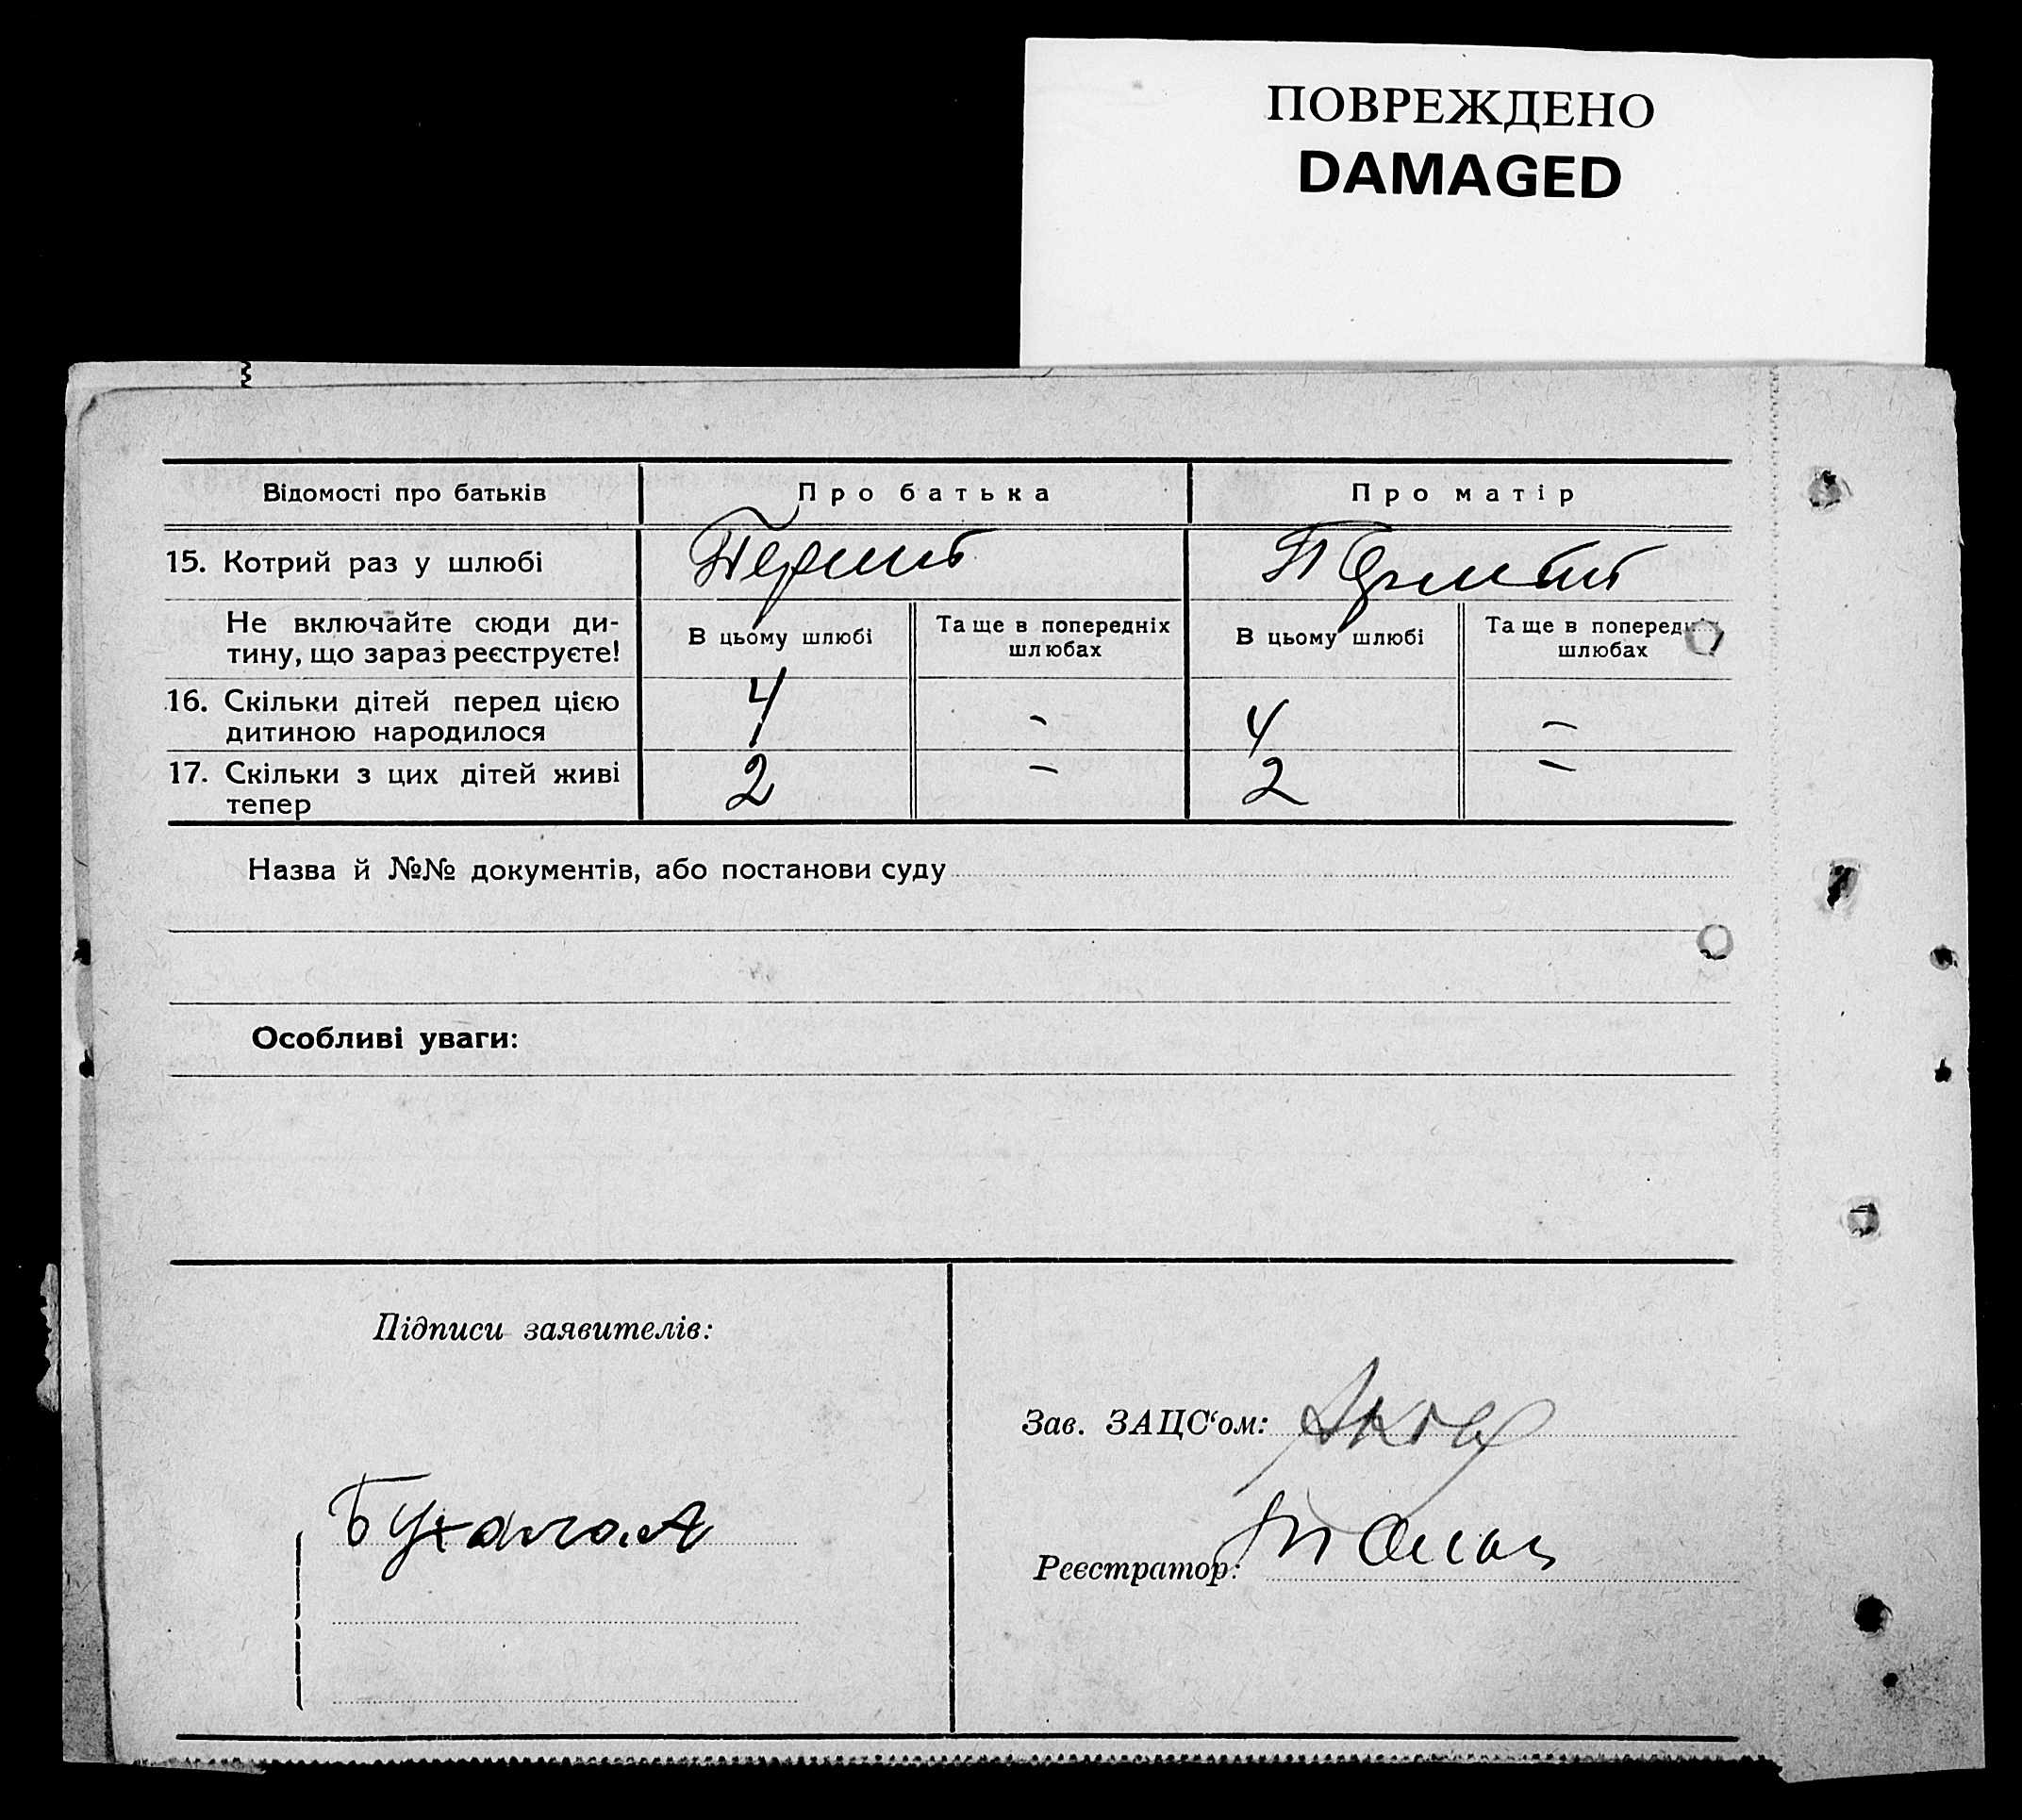 ПОВРЕЖДЕНО
DAMAGED
Відомості про батьків
Про батька
Про матір
15. Котрий раз у шлюбі
Не включайте сюди ди-
тину, що зараз реєструєте!
В цьому шлюбі
Та ще в попередніх
шлюбах
В цьому шлюбі
Та ще в попередніх
шлюбах
16. Скільки дітей перед цією
дитиною народилося
4
-
4
-
17. Скільки з цих дітей живі
тепер
2
-
2
-
Назва й №№ документів, або постанови суду
Особливі уваги:
Підписи заявителів:
Бухало. А
Зав. ЗАЦС‘ом:
Реєстратор: